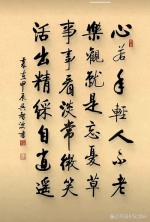 心若年輕人不老
樂觀就是忘憂草
事事看淡常微笑
活出精彩自逍遥